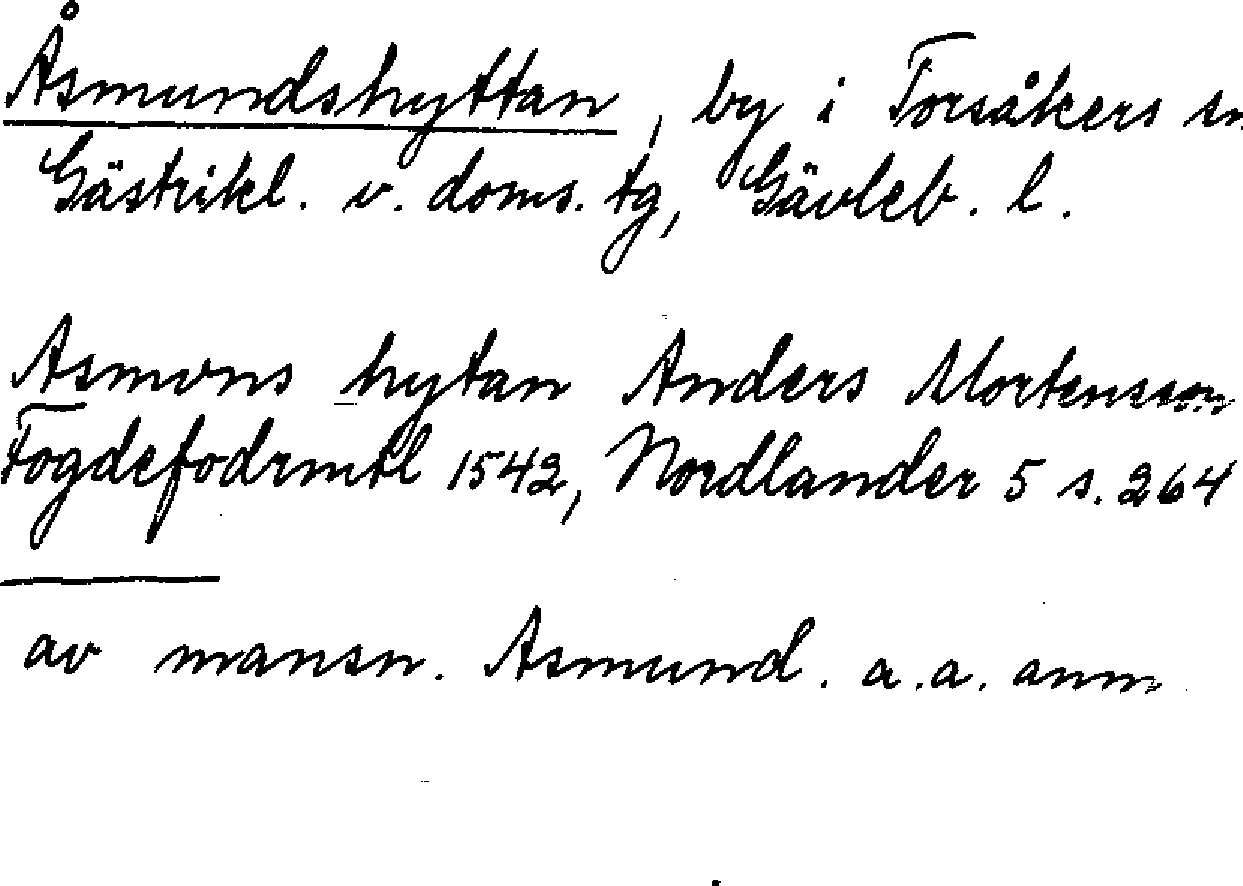 Åsmundshyttan, by i Torsåkers sn
Gästrikl. v. doms. tg, Gävleb. l.
Asmons hytan Anders Mortensson
Fogdefodrmtl 1542, Nordlander 5 s. 264
av mansn. Asmund. a.a. anm